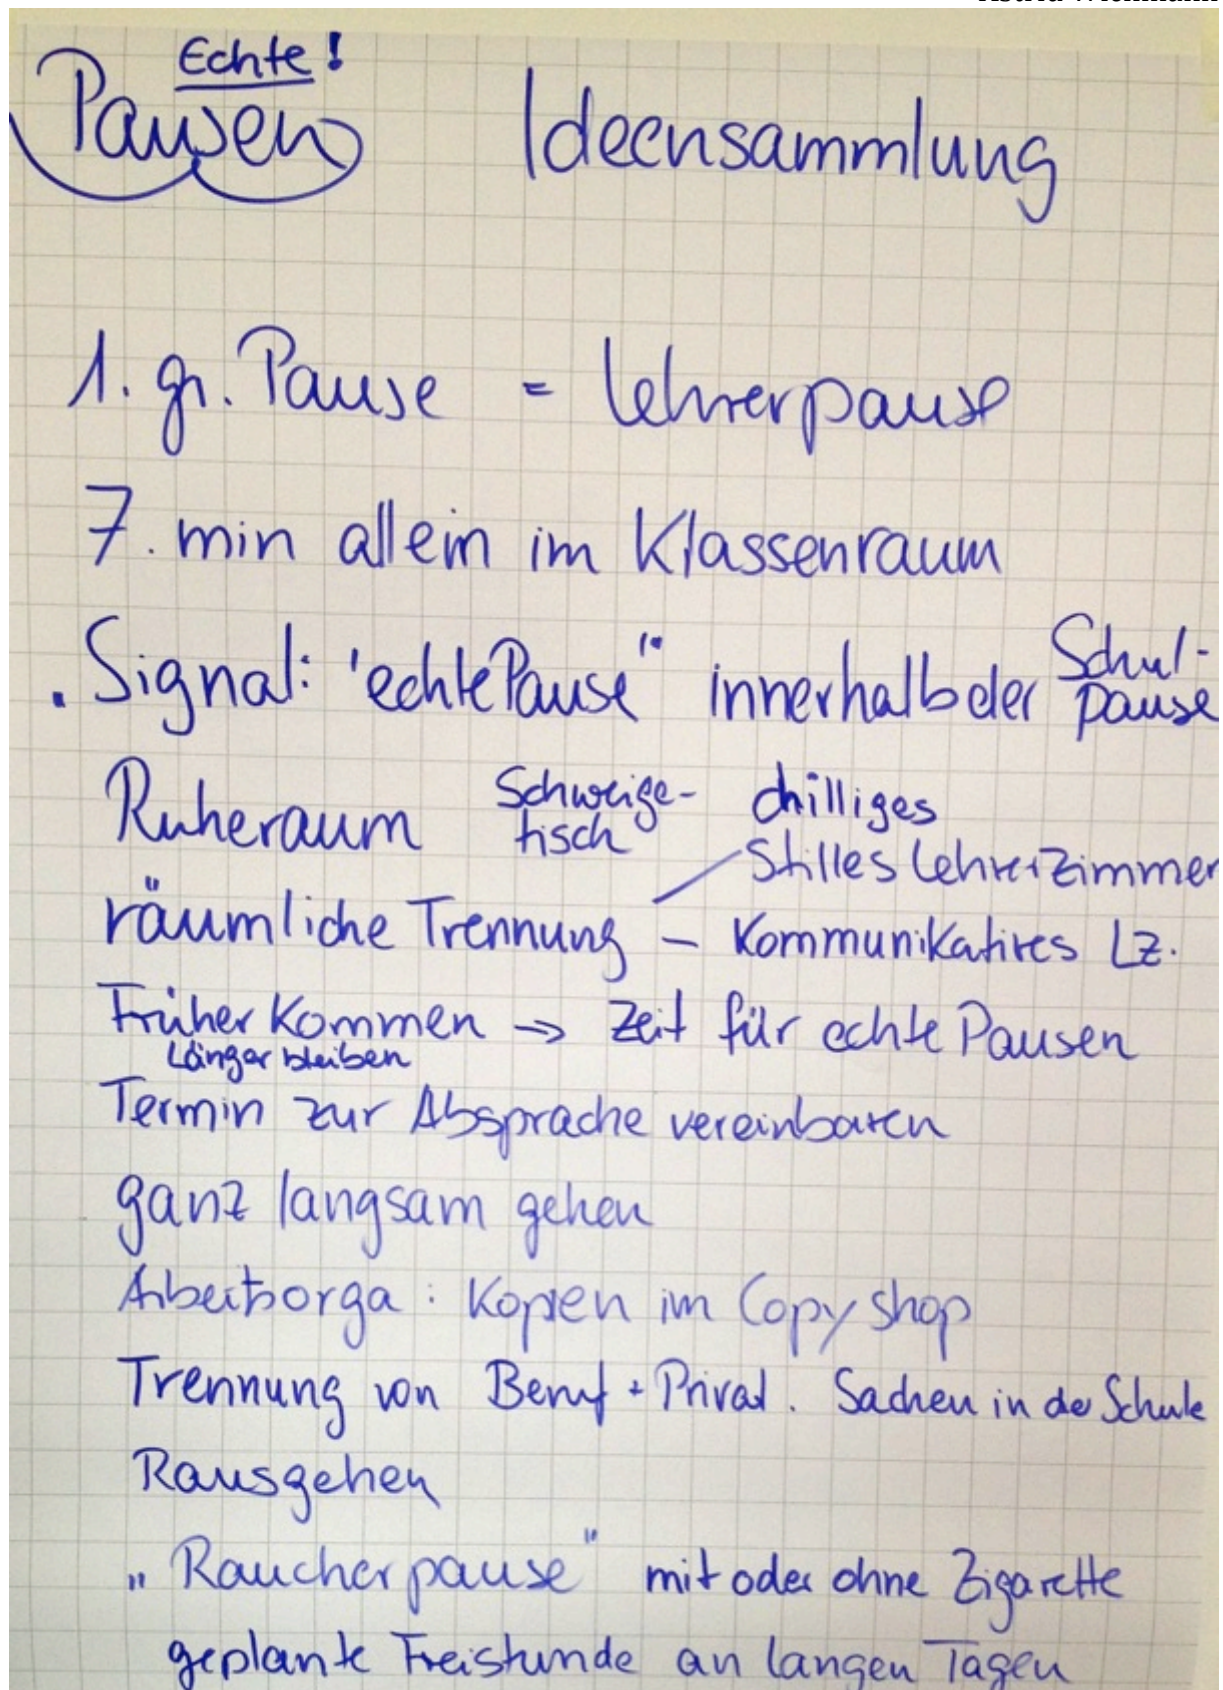 Echte!
Pausen Ideensammlung
1. gr. Pause = Lehrerpause
7. min allein im Klassenraum
. Signal: 'echte Pause" innerhalb der Schul-
pause
Ruheraum Schweige-
tisch chilliges
Stilles Lehrerzimmer
räumliche Trennung – Kommunikatives Lz.
Früher Kommen → Zeit für echte Pausen
Länger bleiben
Termin zur Absprache vereinbaren
ganz langsam gehen
Arbeitsorga : Kopien im Copy shop
Trennung von Beruf + Privat. Sachen in der Schule
Rausgehen
„Raucherpause" mit oder ohne Zigarette
geplante Freistunde an langen Tagen